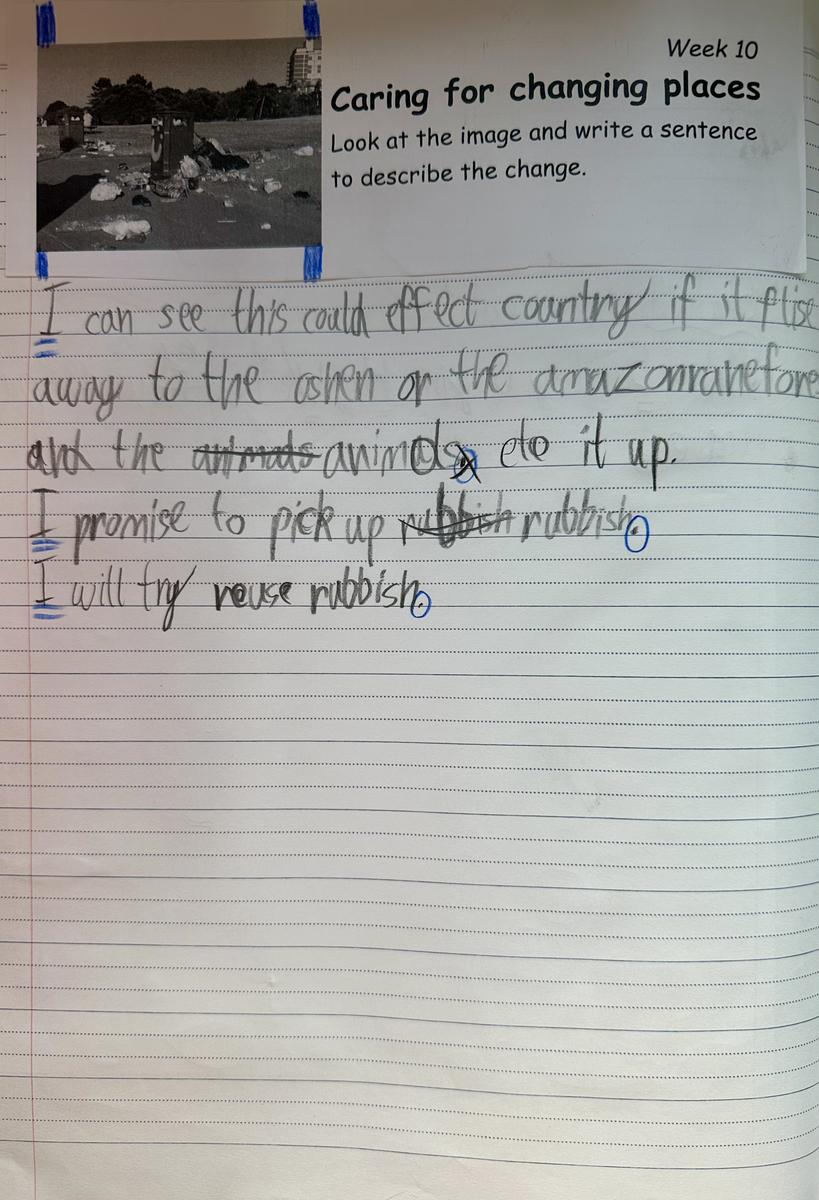 Week 10
Caring for changing places
Look at the image and write a sentence
to describe the change.
I can see this could effect country if it flise
away to the oshen or the amazonranefore
and the animals animals eto it up.
I promise to pick up rubbish rubbish.
I will try reuse rubbish.